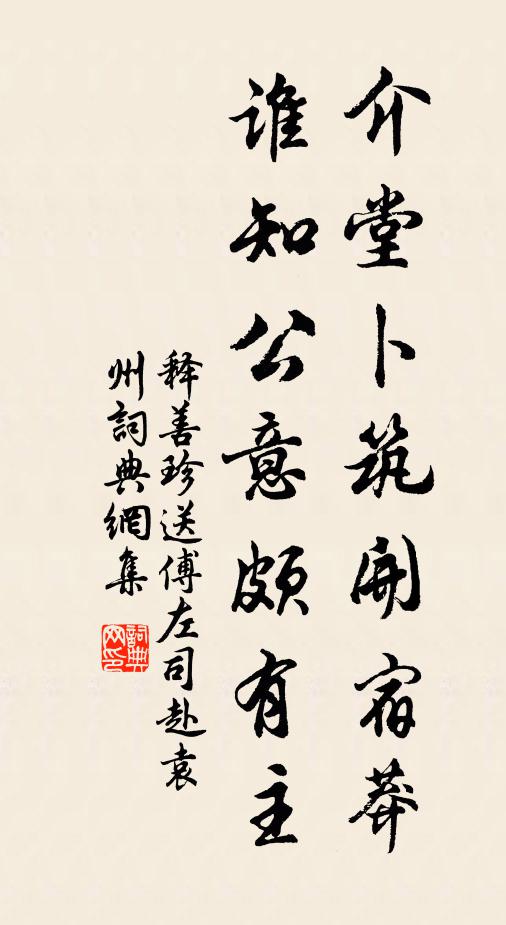 介堂卜筑開宿莽
誰知公意頗有主
释善珍送傅左司赴袁
州詞典網集
詞典網印